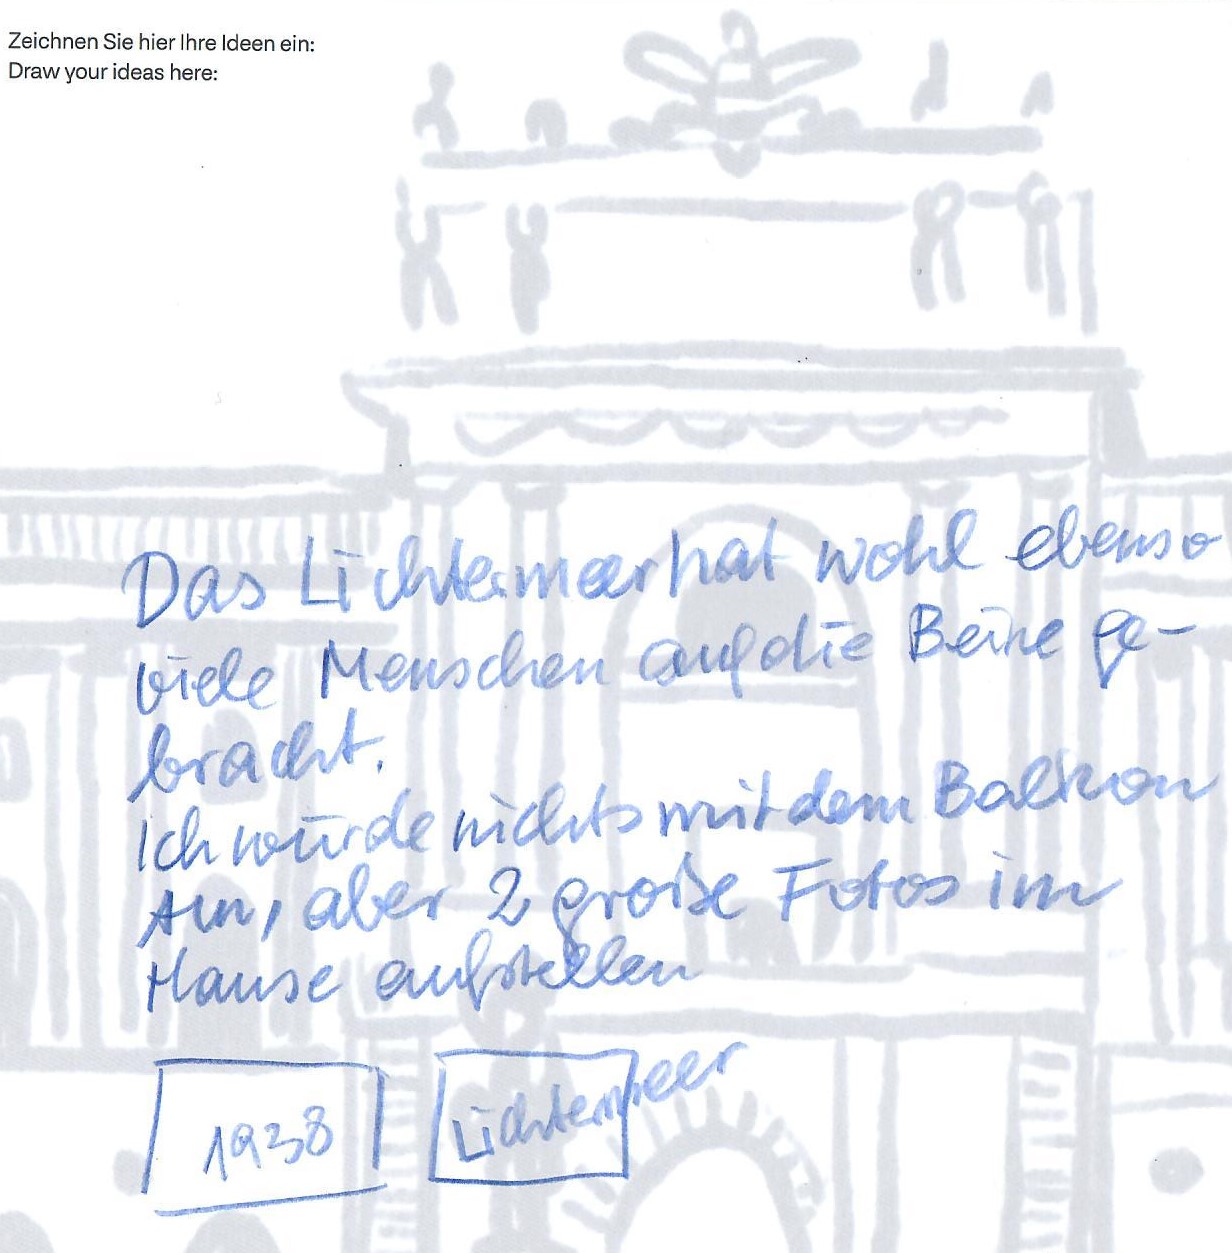 Zeichnen Sie hier Ihre Ideen ein:
Draw your ideas here:
Das Lichtermeer hat wohl ebenso
viele Menschen auf die Beine ge-
bracht.
Ich würde nichts mit dem Balkon
tun, aber 2 große Fotos im
Hause aufstellen
1938
Lichtermeer